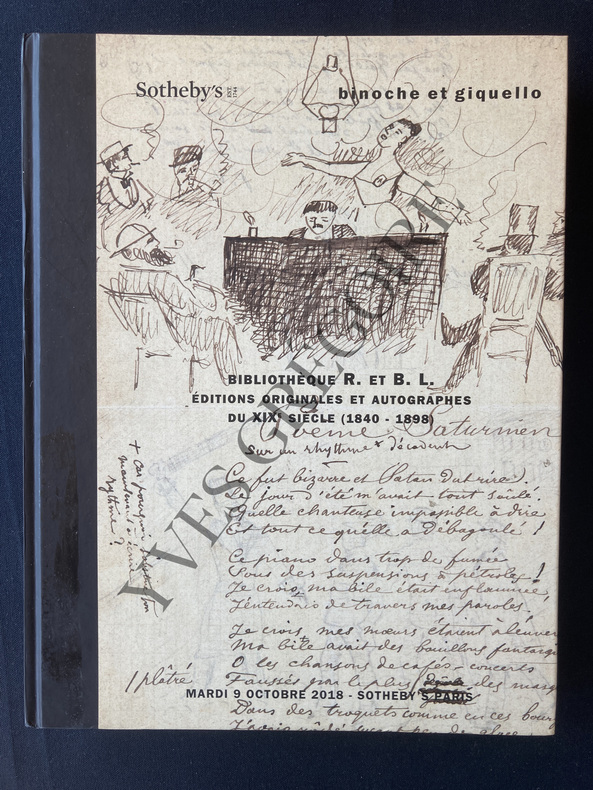 Sotheby's EST. 1744
binoche et giquello
BIBLIOTHÈQUE R. ET B. L.
ÉDITIONS ORIGINALES ET AUTOGRAPHES
DU XIXE SIÈCLE (1840 - 1898)
Poème Saturnien
Sur un rhythme + décadent
+ Car pourquoi
rythme ?
Ce fut bizarre et Satan dut rire.
Ce jour d'été m'avait tout soûlé.
Quelle chanteuse impossible à dire
Et tout ce qu'elle a débagoulé !
Ce piano dans trop de fumée
Sous des suspensions à pétroles !
Je crois, ma bile était enflammée,
J'entendais de travers mes paroles.
Je crois, mes mœurs étaient à l'enver
Ma bile avait des bouillons fantasq
O les chansons de cafés-concerts
Faussés par le plus des masq
1 plâtré
MARDI 9 OCTOBRE 2018 - SOTHEBY'S PARIS
Dans des troquets comme en ces bourg
YVES GREGOIRE